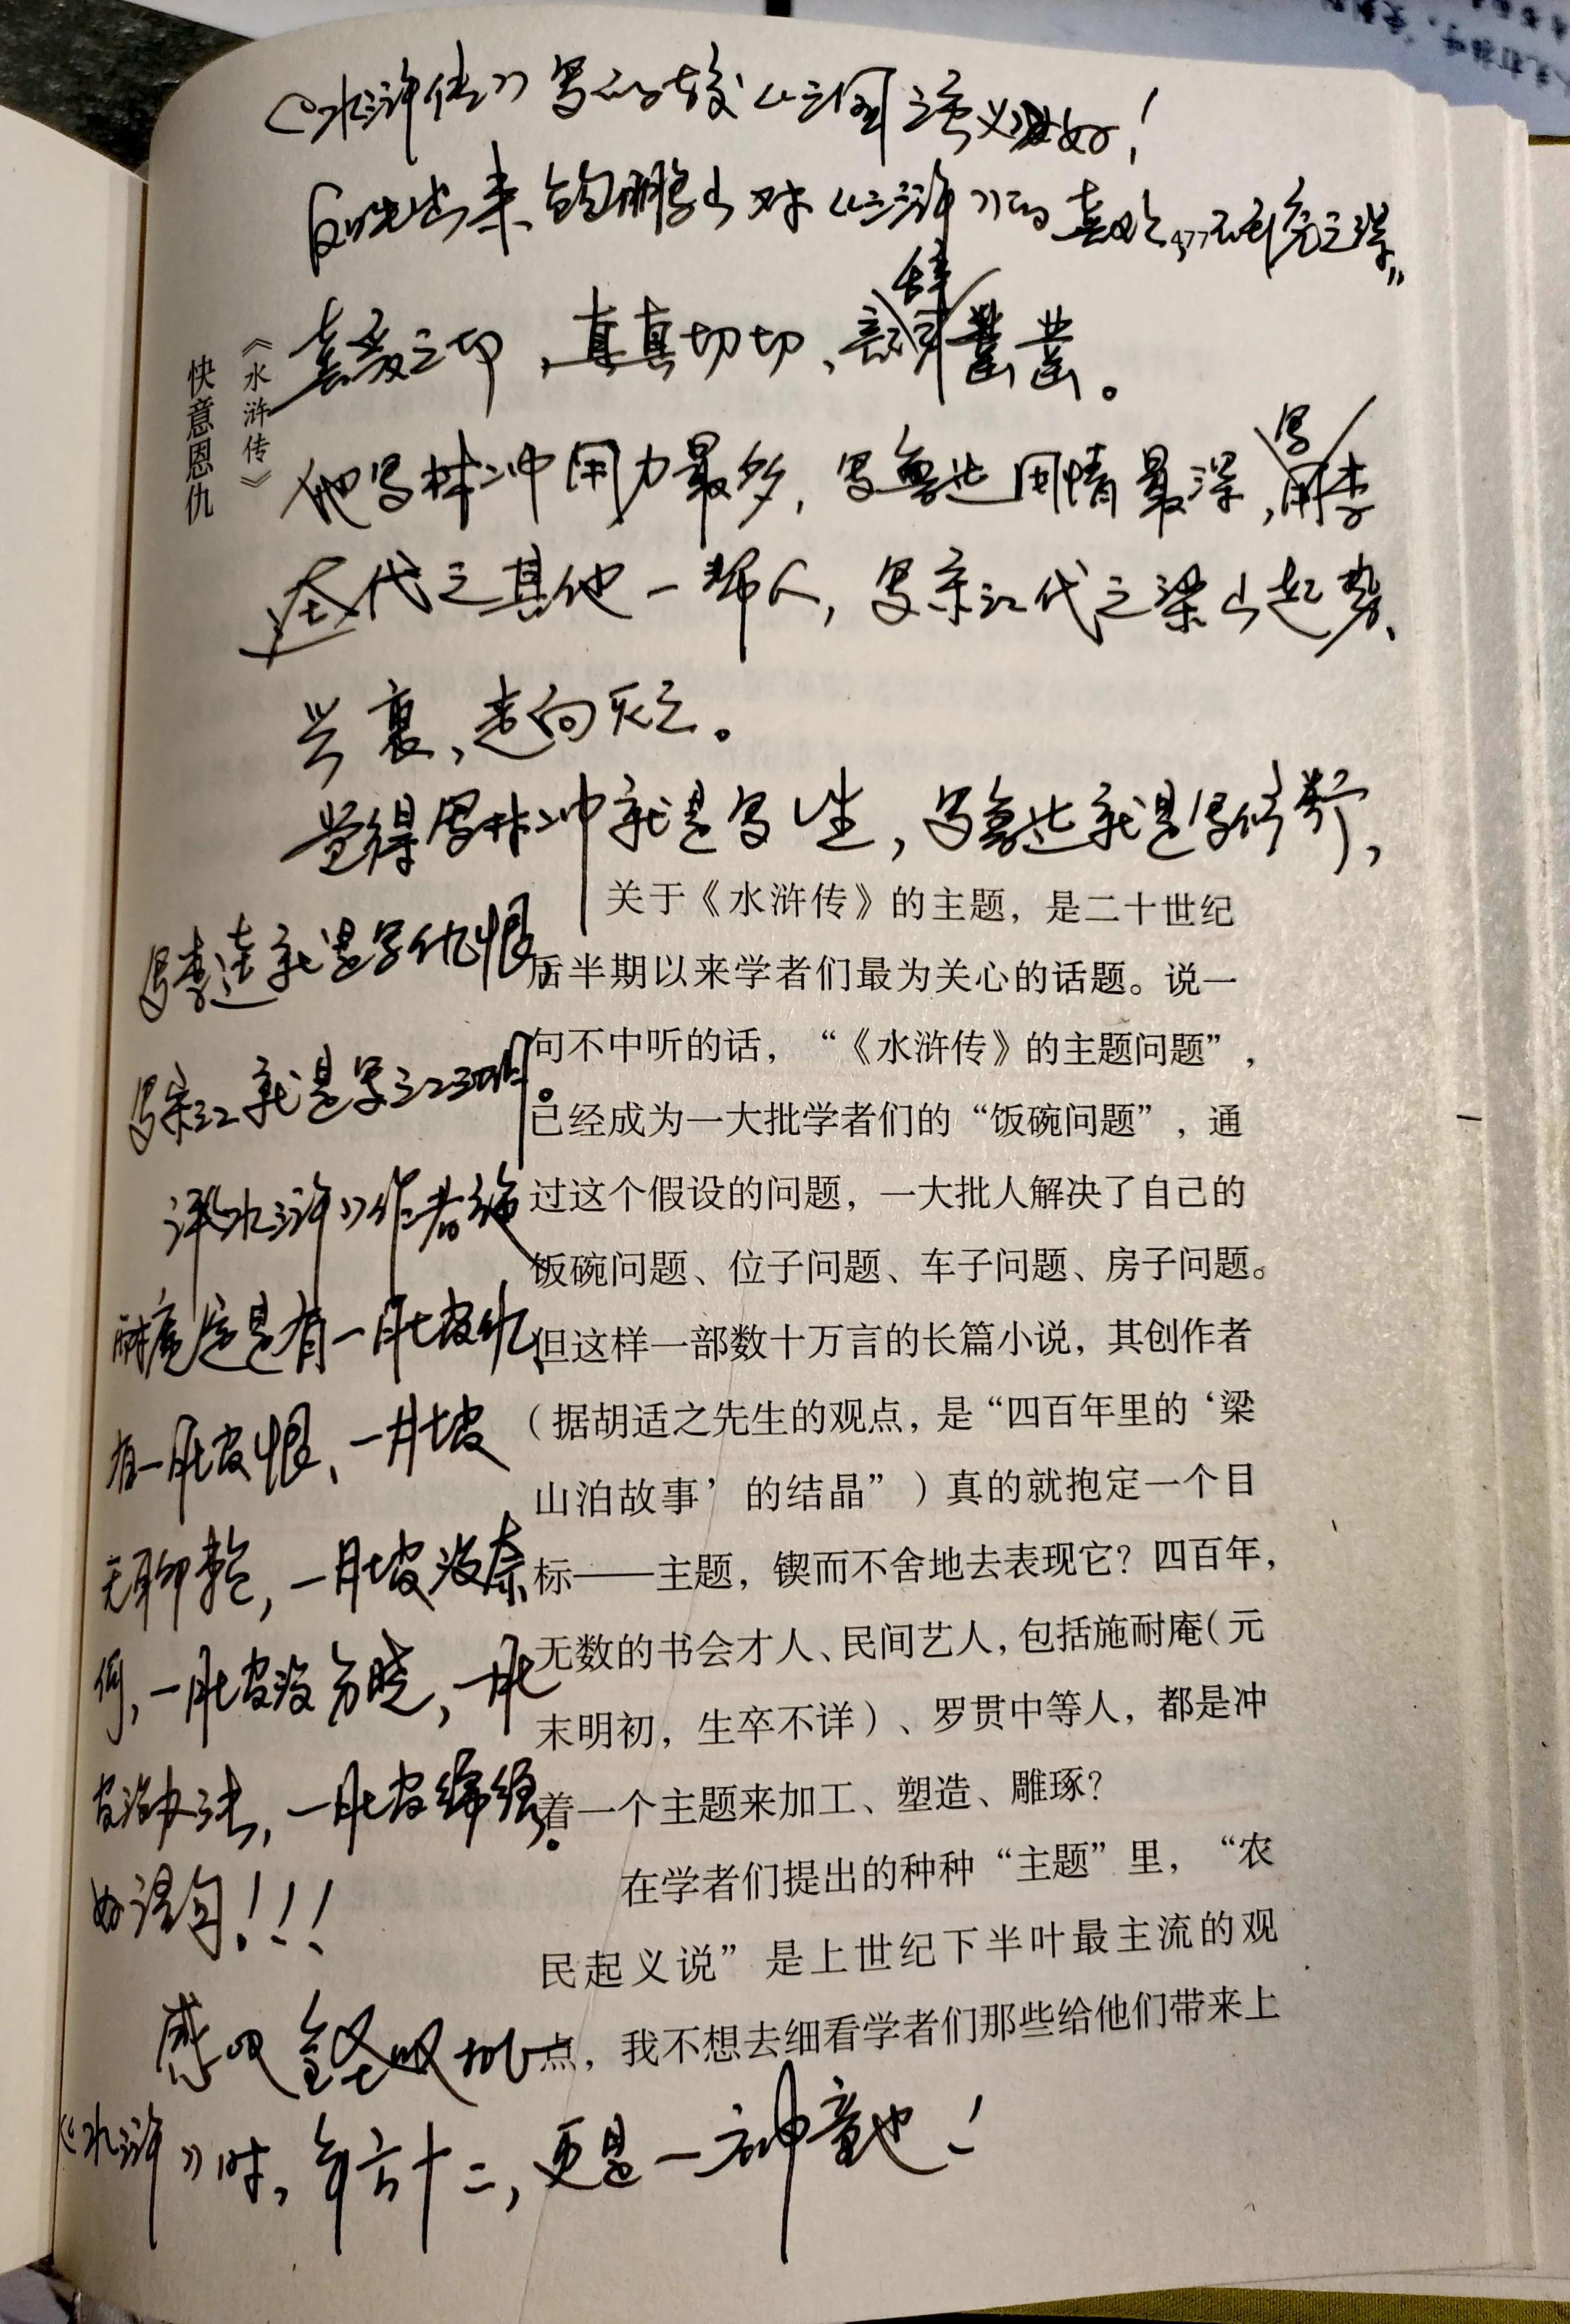 《水浒传》写的较《三国演义》好！
反映出来鲍鹏山对《水浒》的喜欢，
喜爱之切，真真切切，辞凿凿。
他写林冲用力最多，写鲁达用情最深，写李
逵代之其他一帮人，写宋江代之梁山起势、
兴衰、走向灭亡。
觉得写林冲就是写人生，写鲁达就是写修行，
写李逵就是写仇恨
写宋江就是写江湖。
评《水浒》作者施
耐庵定是有一肚皮仇
有一肚皮恨、一肚皮
无聊赖，一肚皮没奈
何，一肚皮没分晓，一肚
皮没办法，一肚皮经纶。
好语句！！！
感叹金圣叹批
《水浒》时，年方十二，更是一神童也！
《水浒传》
快意恩仇
关于《水浒传》的主题，是二十世纪
后半期以来学者们最为关心的话题。说一
句不中听的话，“《水浒传》的主题问题”，
已经成为一大批学者们的“饭碗问题”，通
过这个假设的问题，一大批人解决了自己的
饭碗问题、位子问题、车子问题、房子问题。
但这样一部数十万言的长篇小说，其创作者
（据胡适之先生的观点，是“四百年里的‘梁
山泊故事’的结晶”）真的就抱定一个目
标——主题，锲而不舍地去表现它？四百年，
无数的书会才人、民间艺人，包括施耐庵（元
末明初，生卒不详）、罗贯中等人，都是冲
着一个主题来加工、塑造、雕琢？
在学者们提出的种种“主题”里，“农
民起义说”是上世纪下半叶最主流的观
点，我不想去细看学者们那些给他们带来上